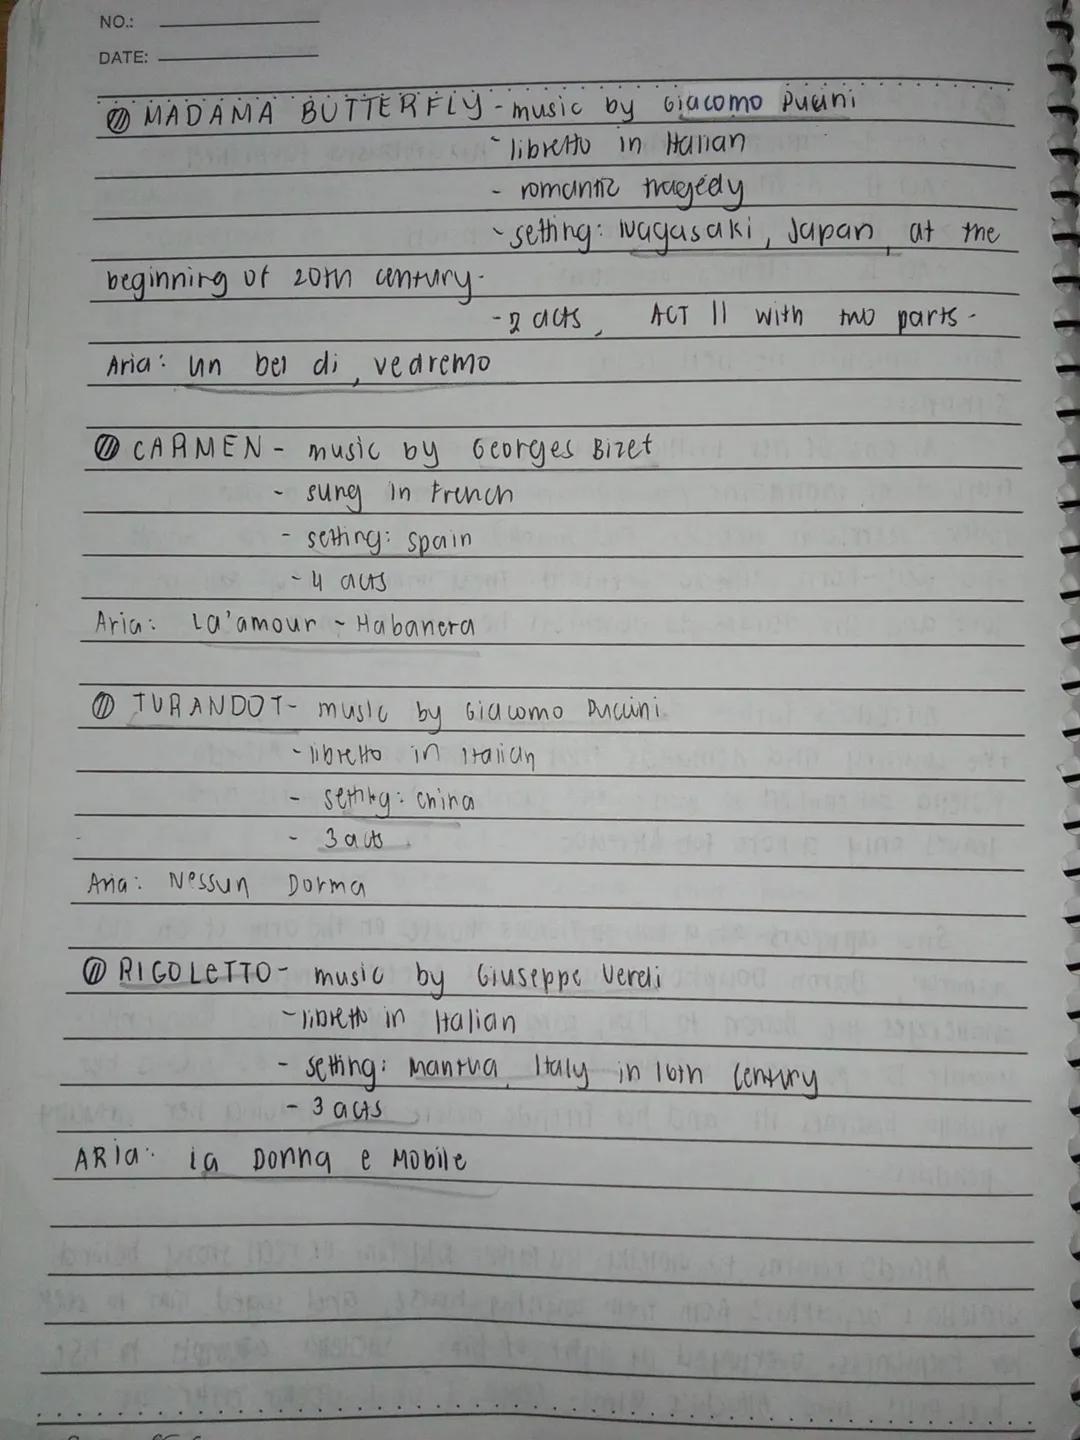 NO.:
DATE:
MADAMA BUTTERFLY - music by Giacomo Puccini
- libretto in Italian
- romantic tragedy
- setting: Nagasaki, Japan, at the
beginning of 20th century.
- 2 acts, ACT II with two parts.
Aria: un bel di, vedremo
CARMEN - music by Georges Bizet
- sung in French
- setting: Spain
- 4 acts
Aria: La'amour - Habanera
TURANDOT - music by Giacomo Puccini
- libretto in Italian
- setting: China
- 3 acts
Aria: Nessun Dorma
RIGOLETTO - music by Giuseppe Verdi
- libretto in Italian
- setting: Mantua, Italy in 16th century
- 3 acts
ARia: la Donna e Mobile